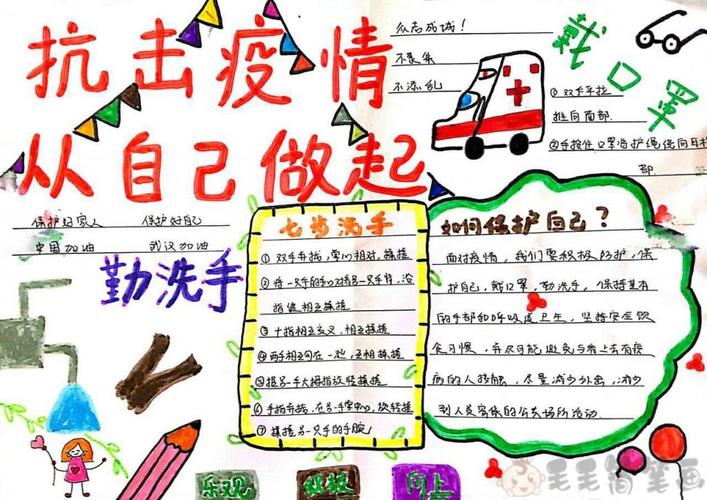 抗击疫情
从自己做起
众志成城！
不聚集
不添乱
戴口罩
①双手平拉
推向面部
②手按住口罩沿护绳绕向耳根
部
保护好家人 保护好自己
中国加油 武汉加油
勤洗手
七步洗手
①双手并拢，掌心相对，揉搓
②将一只手的手心对搓另一只手背，沿
指缝相互揉搓
③十指相互交叉，相互揉搓
④两手相互勾在一起，互相揉搓
⑤握另一手大拇指旋转揉搓
⑥手指并拢，在另一手掌中心，旋转揉搓
⑦揉搓另一只手的手腕
如何保护自己？
面对疫情，我们要积极防护，保
护自己，戴口罩，勤洗手，保持其有
的手部和呼吸道卫生，坚持安全饮
食习惯，并尽可能避免与看上去有疾
病的人接触，尽量减少外出，减少
到人员密集的公共场所活动
乐观
积极
向上
毛毛简笔画